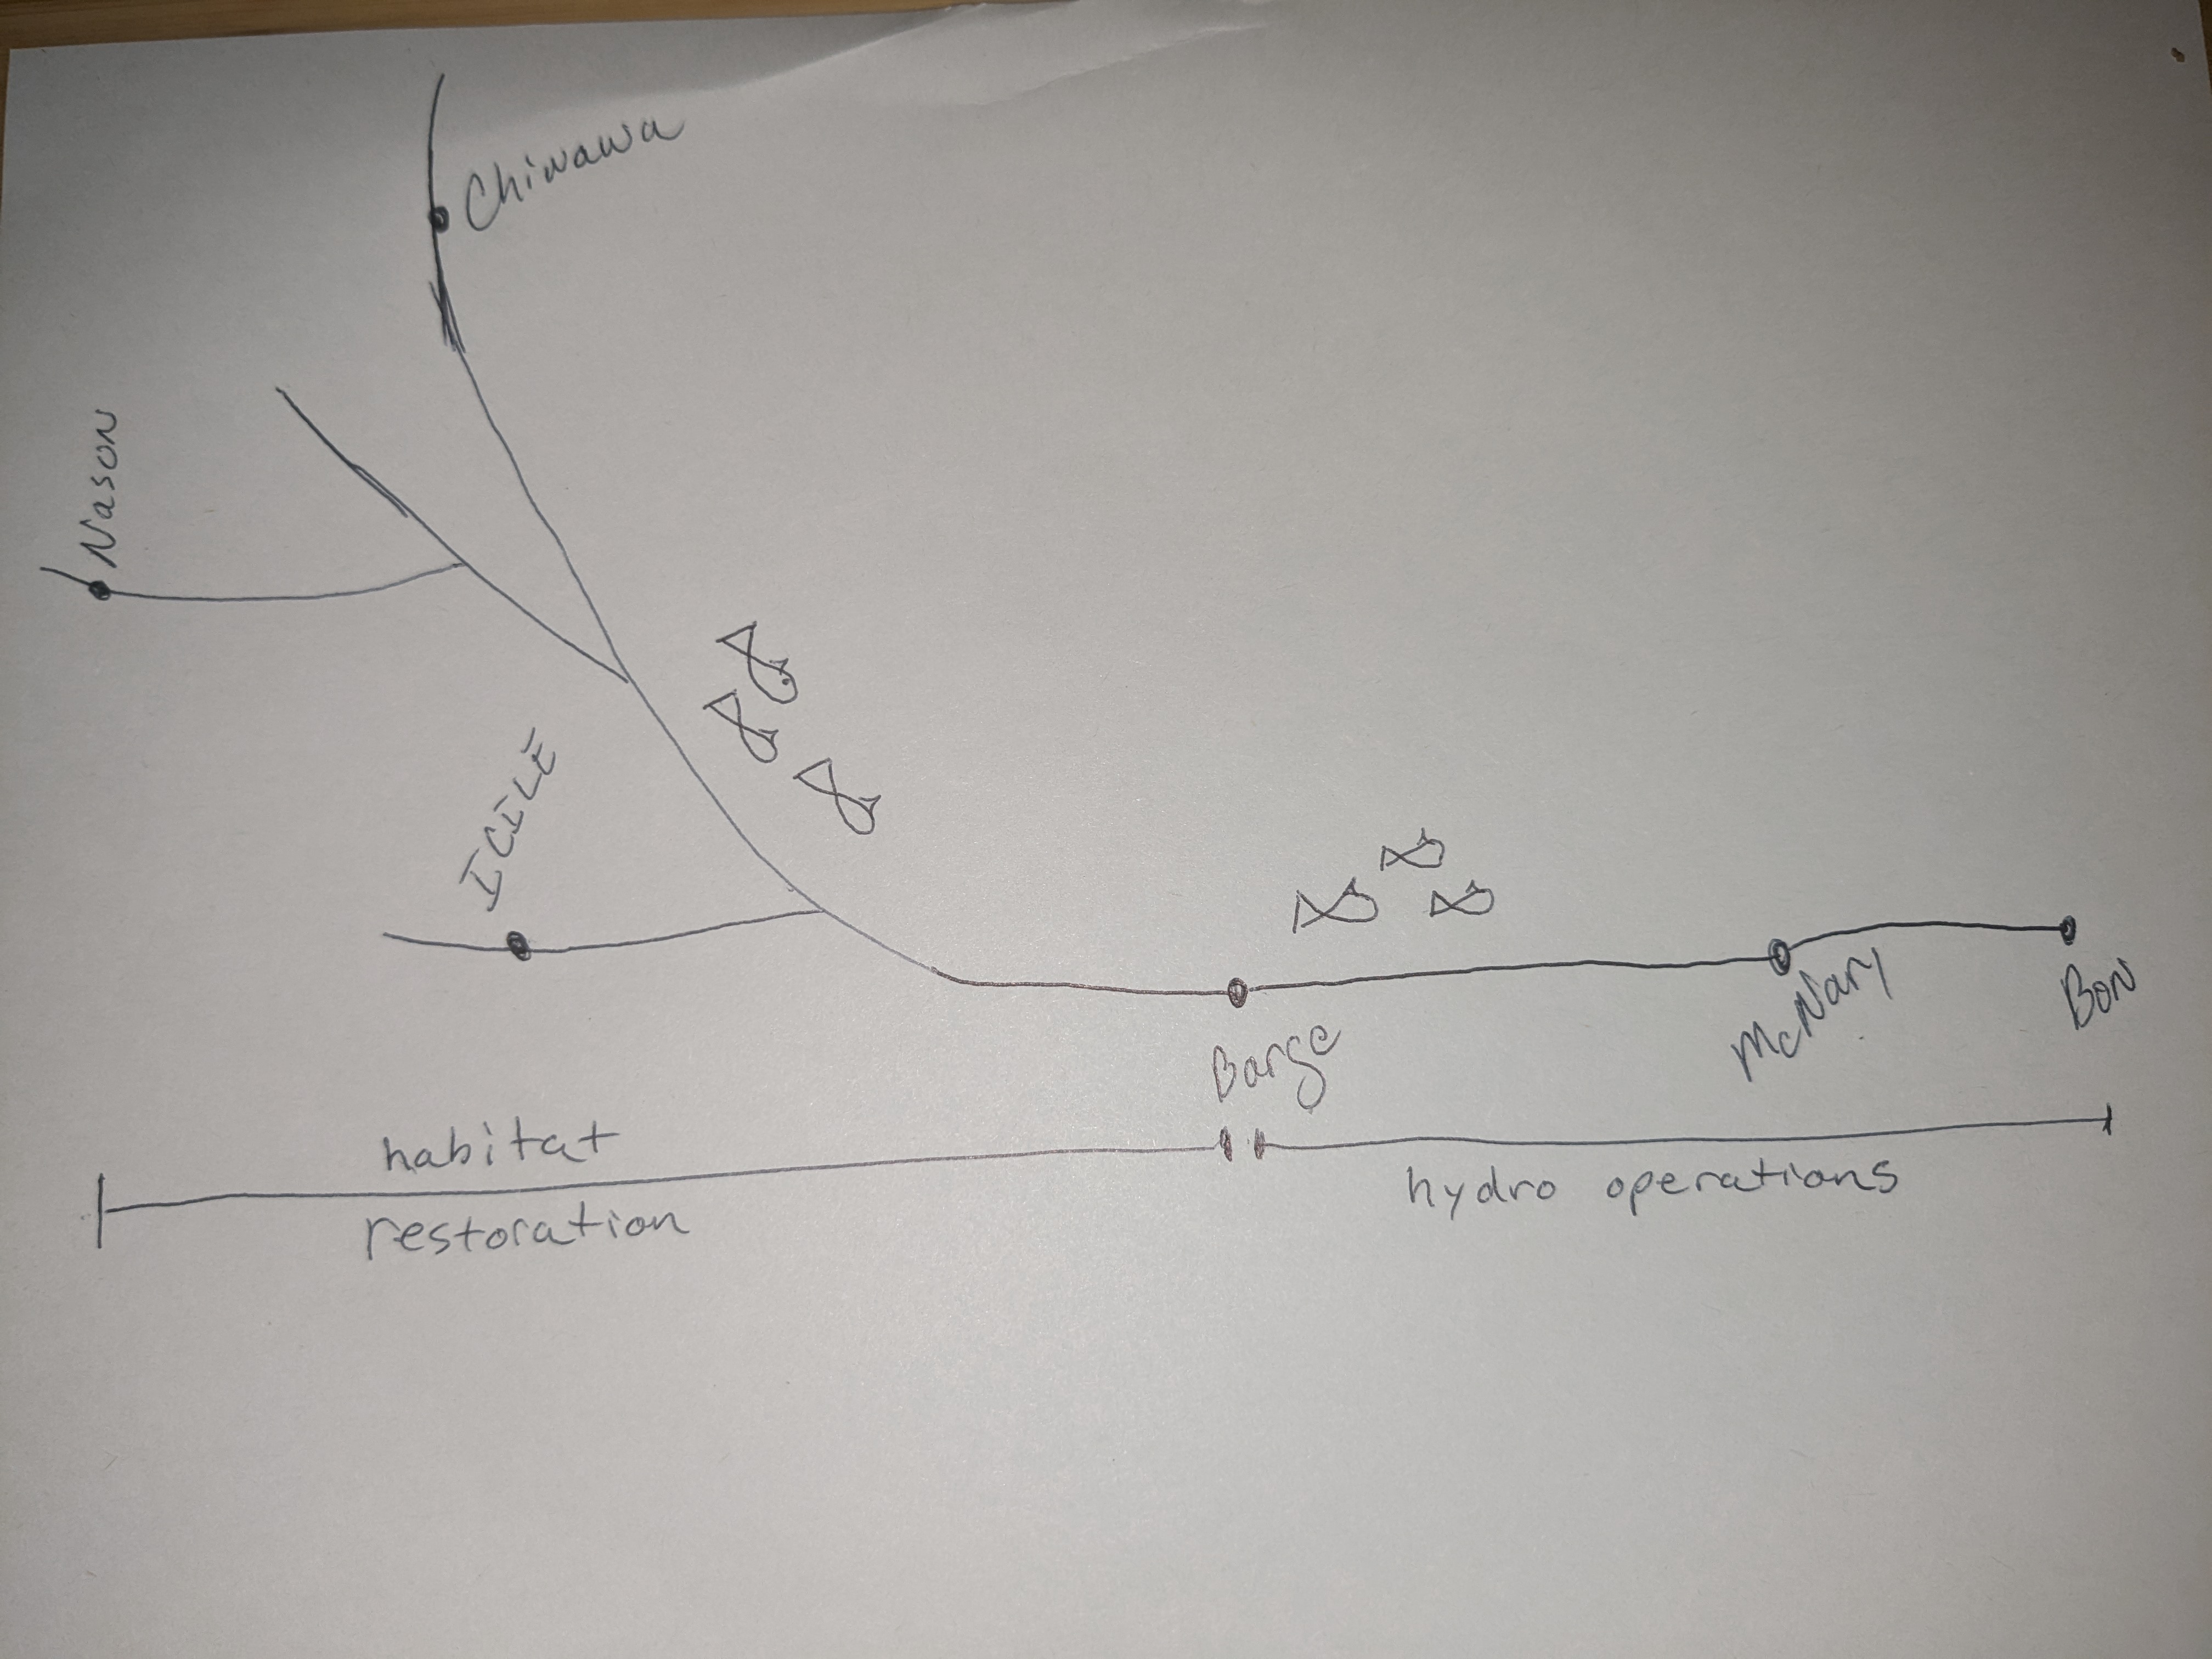 Chiwawa
Nason
ICILE
Barge
McNary
Bon
habitat
restoration
hydro operations